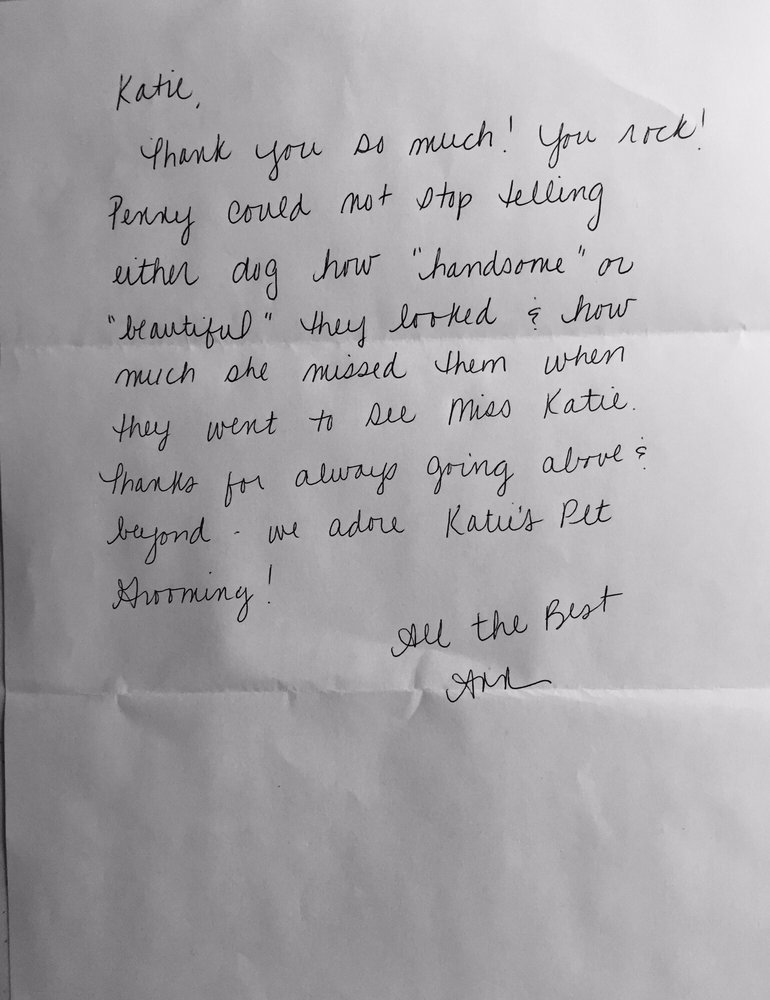 Katie,
Thank you so much! You rock!
Penny could not stop telling
either dog how "handsome" or
"beautiful" they looked & how
much she missed them when
they went to see Miss Katie.
Thanks for always going above &
beyond - we adore Katie's Pet
Grooming!
All the Best
Ann